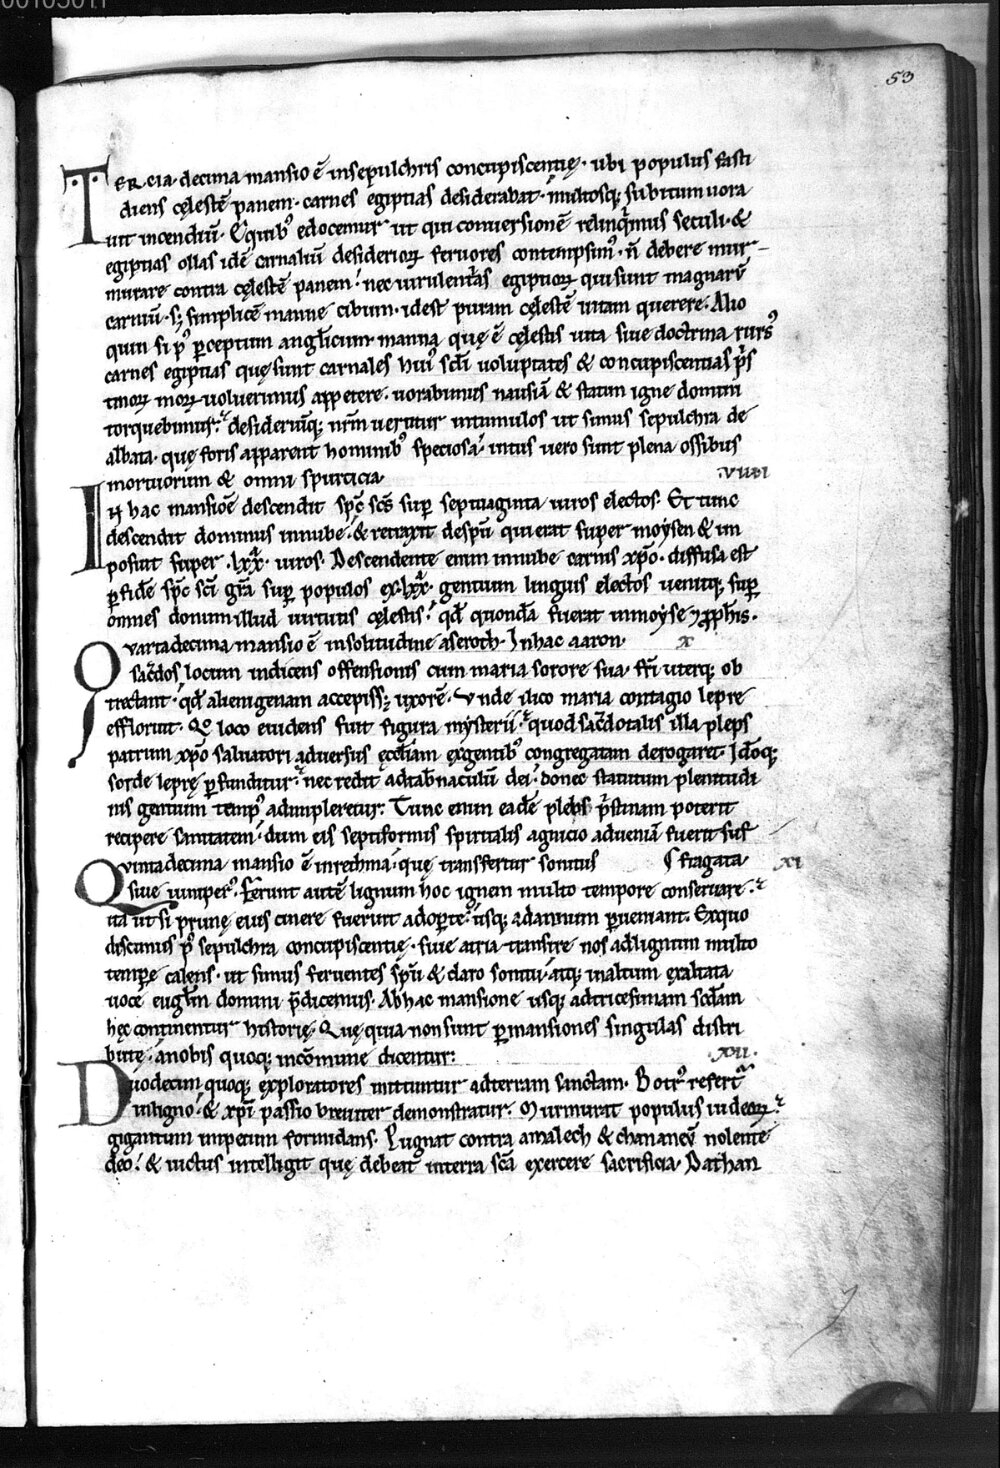 53
TER cia. decima mansio ē insepulchris concupiscentię. ubi populus fasti
diens cęlestē panem. carnes egiptias desiderabat. multosq; subitum uora
uit incendiū. Equib⁹ edocemur ut qui conuersionē relinq̃mus seculi. &
egiptias ollas idē carnaliū desiderioꝝ feruores contempsim⁹. n̄ debere mur
murare contra cęlestē panem. nec uirulentias egiptioꝝ qui sunt magnarū
carniū. sꝫ simplicē manne cibum. idest puram cęlestē uitam querere. Alio
quin si p⁹ ꝑceptum anglicum manna quę ē cęlestis uita siue doctrina rurs⁹
carnes egiptias quę sunt carnales hui⁹ sc̄li uoluptates & concupiscentias p̃s
tinoꝝ moꝝ uoluerimus appetere. uorabimus nausiā & statim igne domini
torquebimur. desideriūq; nr̄m uertitur intumulos ut simus sepulchra de
albata. quę foris apparent hominib⁹ speciosa. intus uero sunt plena ossibus
mortuorum & omni spurcicia
viiii
In hac mansiōe descendit sp̄c sc̄s sup̱ septuaginta uiros electos. Et tunc
descendit dominus innube. & retraxit despū qui erat super moysen & im
posuit super .lxx. uiros. Descendente enim innube carnis xp̄o. diffusa est
ꝑfidē sp̄c sc̄i gr̄a sup̱ populos ex .lxx. gentium linguis electos uenitq; sup̱
omnes donum illud uirtutis cęlestis. qd̄ quondā fuerat inmoyse ⁊ꝓph̄is.
Quarta decima mansio ē insolitudine aseroth. In hac aaron. x
sac̄dos locum indicens offensionis cum maria sorore sua. fr̄i uterq; ob
trectant. qd̄ alienigenam accepissꝫ uxorē. Vnde ilico maria contagio lepre
effloruit. Qo loco euidens fuit figura mysterii. quod sac̄dotalis illa plebs
patrum xp̄o saluatori aduersus ęccl̄iam exgentib⁹ congregatam derogaret. Idōq;
sorde leprę ꝑfunditur. nec redit ad tab̄naculū dei. donec statutum plenitudi
nis gentium temp⁹ adimpleretur. Tunc enim eadē plebs p̃stinam poterit
recipere sanitatem. dum eis septiformis spiritalis agnicio adueniā fuerit suf
Quinta decima mansio ē inrethma. quę transfertur sonitus ¶ fragata xi
siue iuniper⁹. Ferunt autē lignum hoc ignem multo tempore conseruare.
ita ut si prunę eius cinere fuerint adoꝑte. usq; adannum ꝑueniant. Exquo
discimus p⁹ sepulchra concupiscentię. siue atria transire nos adlignum multo
tempe calens. ut simus feruentes sp̄u & claro sonitu. atq; inaltum exaltata
uoce eugl̄m domini p̄dicemus. Abhac mansione usq; adtricesimam sc̄dam
hęc continentur historię. Quę quia non sunt ꝑmansiones singulas distri
butę. anobis quoq; incōmune dicentur.
xii.
Duodecim quoq; exploratores mittuntur adterram sanctam. Botr⁹ refert̃
inligno. & xp̄i passio breuiter demonstratur. Murmurat populus iudeoꝝ.
gigantum impetum formidans. Pugnat contra amalech & chananeū nolente
deo. & uictus intelligit quę debeat interra sc̄a exercere sacrificia. Dathan